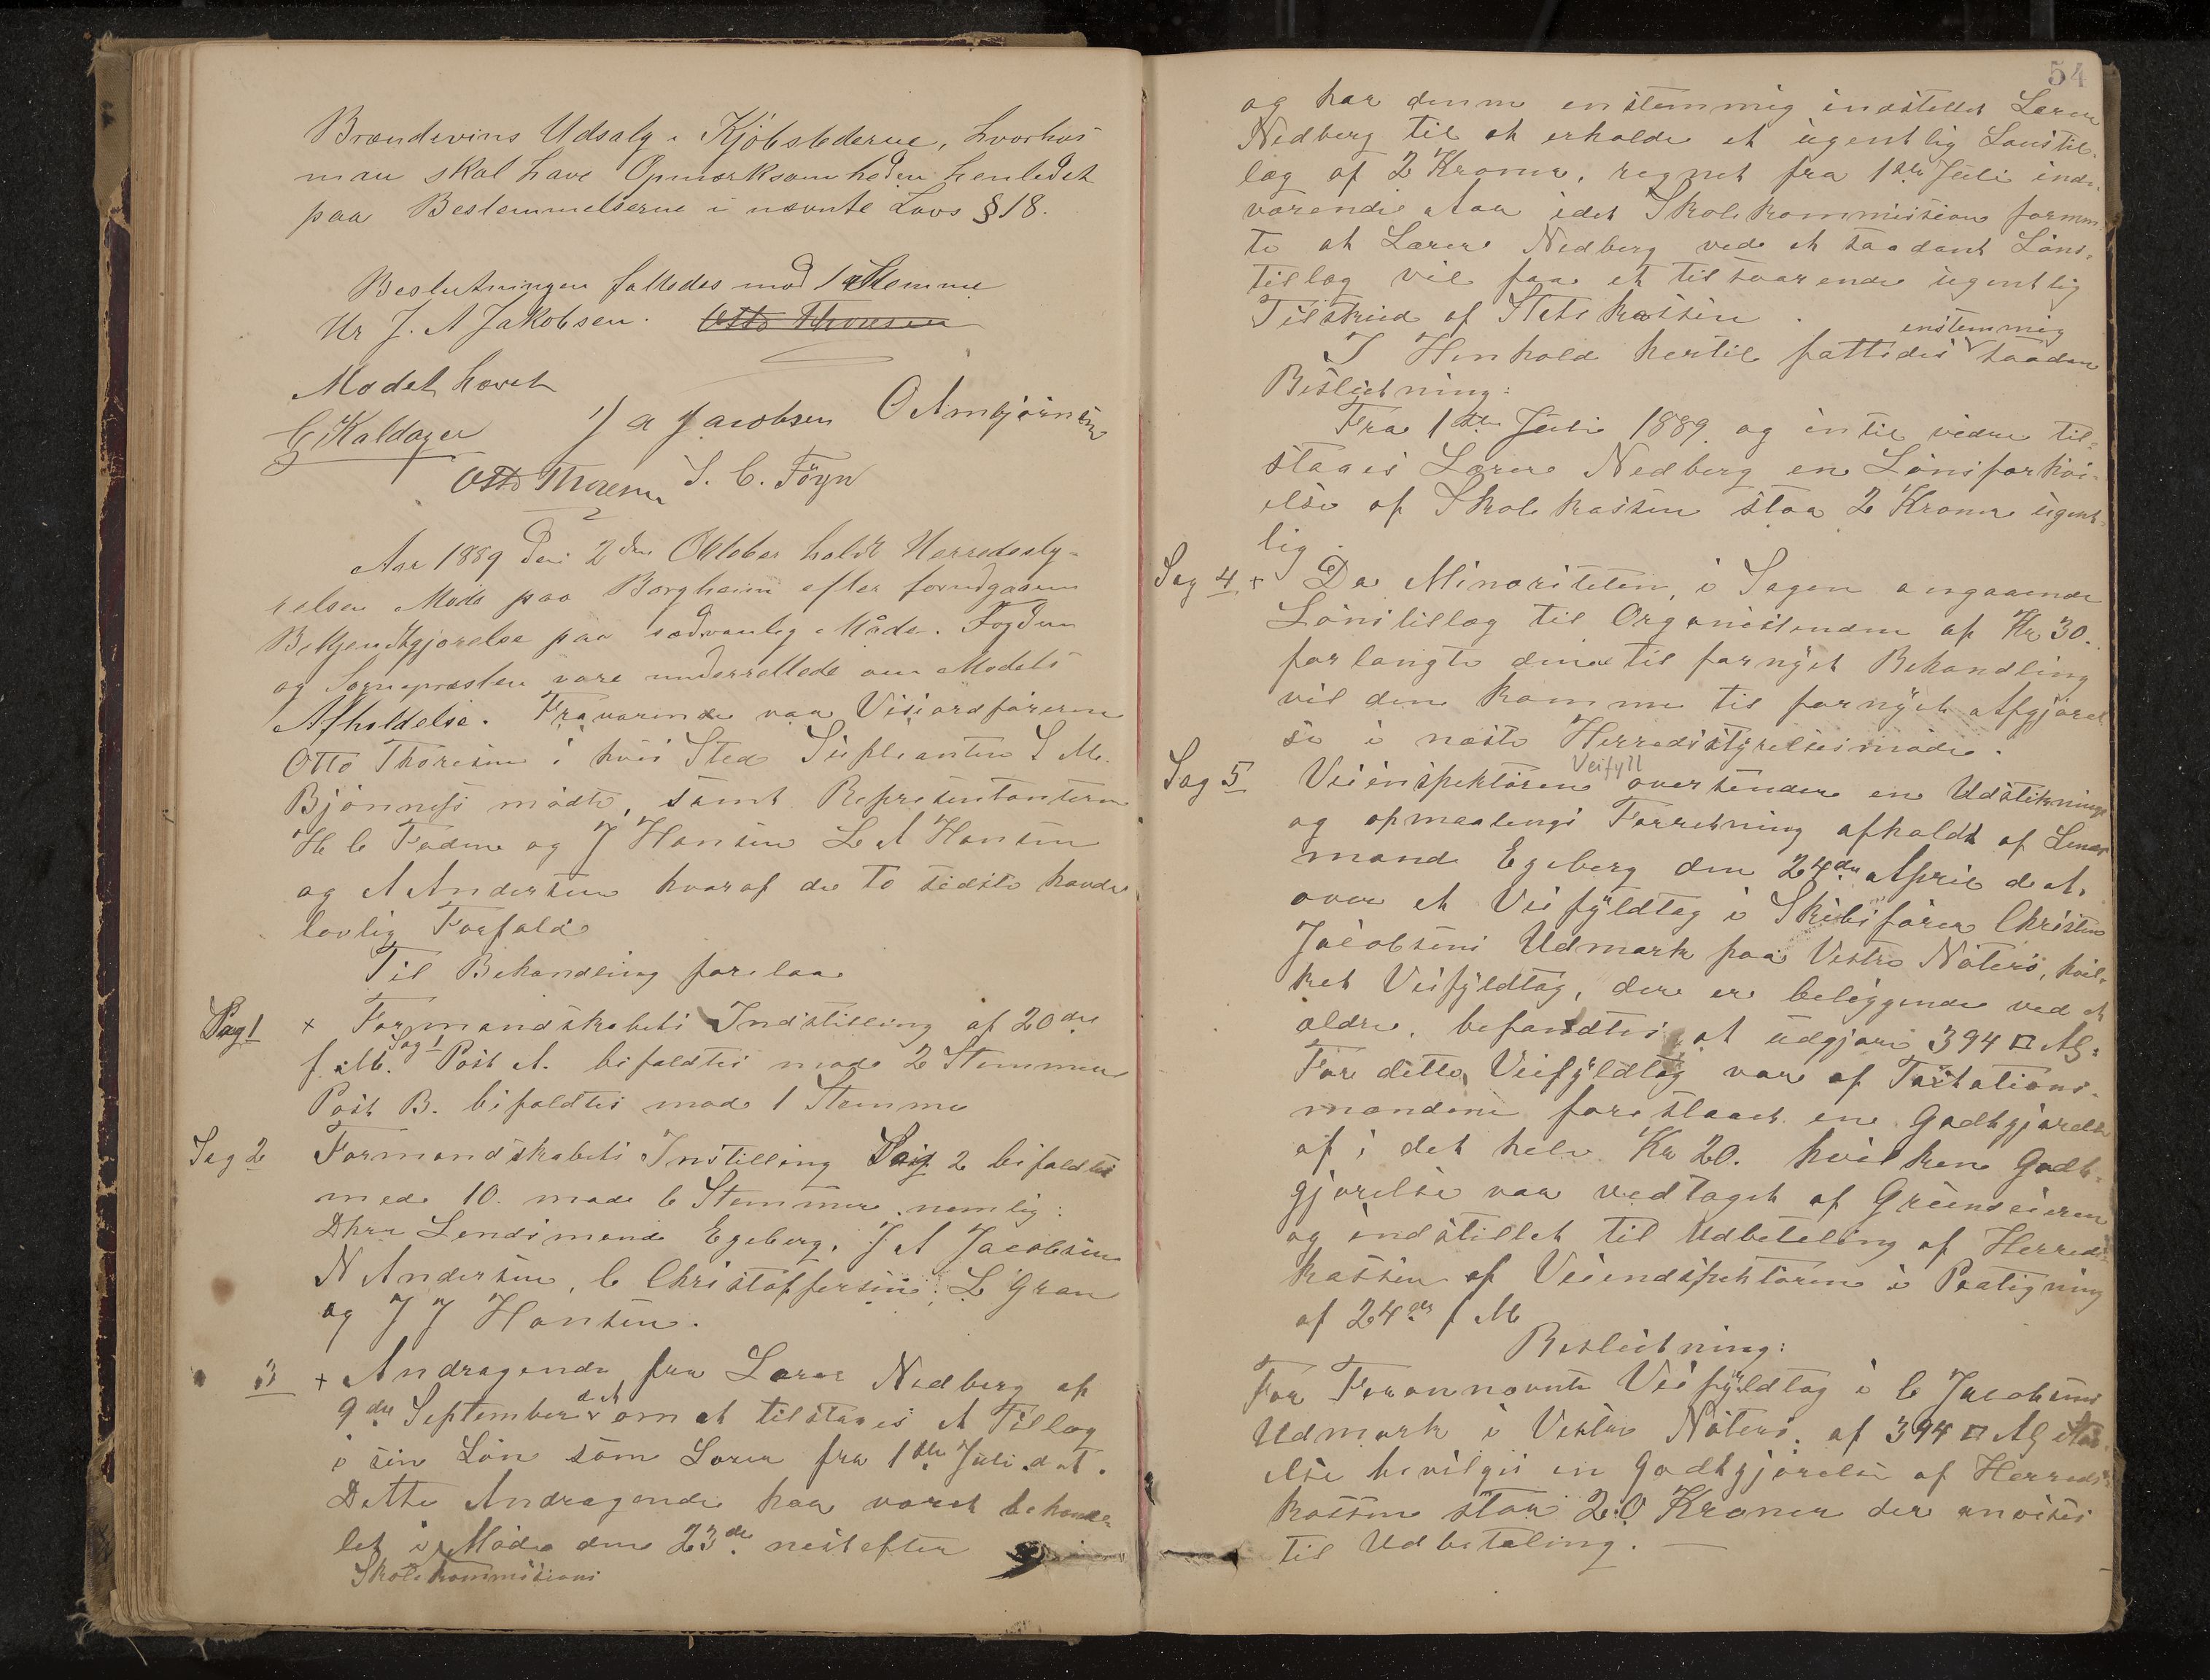 Brændevins Udsalg i Kjøbstederne, hvorhos
man skal have Opmærksomheden henledet
paa Bestemmelserne i nævnte Lovs § 18.
Beslutningen fattedes mod 1 Stemme
Hr J. A Jakobsen. Otto Thoresen
Mødet hævet
C Kaldager J A Jacobsen O Arnbjörnsen
Otto Thoresen S. C. Föyn
Aar 1889 den 2den Oktober holdt Herredssty-
relsen Møde paa Borgheim efter forudgaaen
Bekjendtgjørelse paa sædvanlig Måde. Fogden
og Sognepræsten vare underrettede om Mødets
Afholdelse. Fraværende var Viseordføreren
Otto Thoresen i hvis Sted Supleanten S M.
Bjönness mødte, samt Representanterne
H C Fadum og J Hansen L A Hansen
og A Andersen hvoraf de to sidste havde
lovlig Forfald
Til Behandling forelaa
Sag 1 x Formandskabets Indstilling af 20de
f. M. Sag 1 Post A. bifaldtes mod 2 Stemmer
Post B. bifaldtes mod 1 Stemme
Sag 2 Formandskabets Instilling Sag 2 bifaldtes
med 10. mod 6 Stemmer. nemlig:
Dhrr Lendsmand Egeberg, J A Jacobsen
N Andersen, C Christoffersen, L Gran
og J J Hansen.
3 x Andragende fra Lærer Nedberg af
9de September d A om at tilstaaes et Tillæg
i sin Lön som Lærer fra 1ste Juli d. A.
Dette Andragende har været behand-
let i Møde den 23de nestefter
Skolekommisions
54
og har denne enstemmig indstillet Lærer
Nedberg til at erholde et ugentlig Lønstil-
læg af 2 Kroner, regnet fra 1ste Juli inde-
værende Aar idet Skolekommission formen-
te at Lærer Nedberg ved et saadant Löns-
tillæg vil faa et tilsvarende ugentlig
Tilskud af Statskassen.
I Henhold hertil fattedes enstemmig saaden
Beslutning:
Fra 1ste Juli 1889 og intil videre til-
staaes Lærer Nedberg en Lönsforhöi-
else af Skolekassen stor 2 Kroner ugent-
lig.
Sag 4 x Da Minoriteten, i Sagen angaaende
Lönstillæg til Organistenden af Kr 30.
forlangte denne til fornyet Behandling
vil den komme til fornyet Afgjørel
se i næste Herredsstyrelsesmøde.
Veifyll
Sag 5 Veiinspektören oversender en Udstiknings
og opmaalings Forretning afholdt af Lends
mand Egeberg den 24de April d. A.
over et Veifyldtag i Skibsförer Christen
Jacobsens Udmark paa Vestre Nöterö, hvil-
ket Veifyldtag, der er beliggende ved et
ældre, befandtes at udgjøre 394 □ Al.
For dette Veifyldtag var af Taxtations-
mændene foreslaaet en Godtgjørelse
af i det hele Kr 20. hvilken Godt-
gjørelse var vedtaget af Grunseieren
og indstillet til Udbetaling af Herreds-
kassen af Veiindspektören i Paategning
af 24de f M
Beslutning:
For Forannævnte Veifyldtag i C Jacobsens
Udmark i Vestre Nöterö. af 394 □ Al Stör-
else bevilges en Godtgjørelse af Herreds-
kassen stor 20 Kroner der anvises
til Udbetaling. —